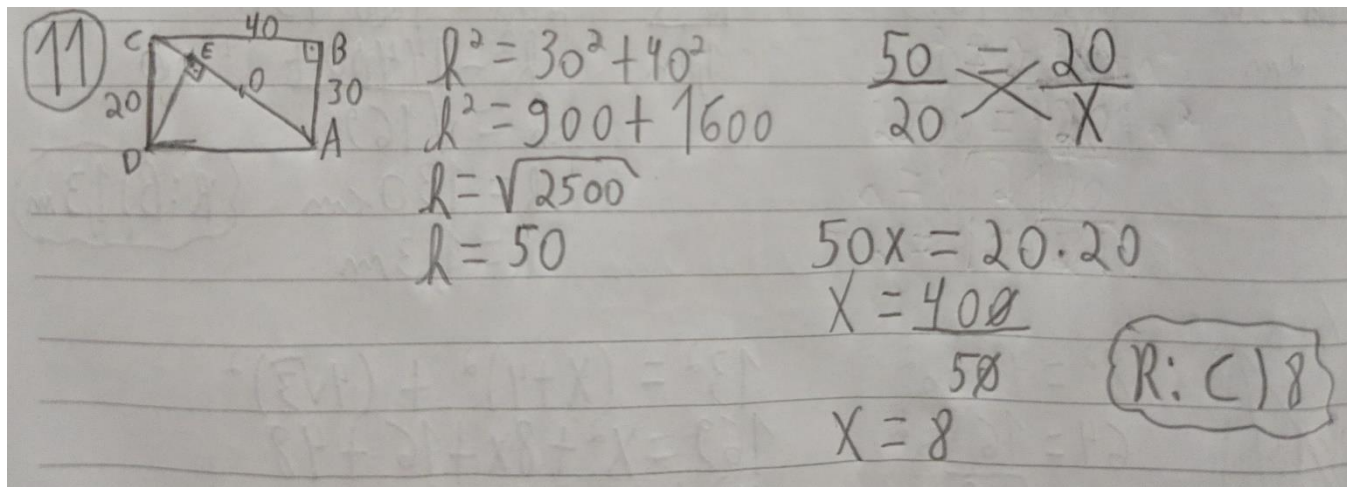 11
C 40 B
E
O
20 30
D A
h² = 30² + 40²
h² = 900 + 1600
h = √2500
h = 50
50/20 = 20/X
50x = 20·20
X = 400/50
X = 8
R: C) 8